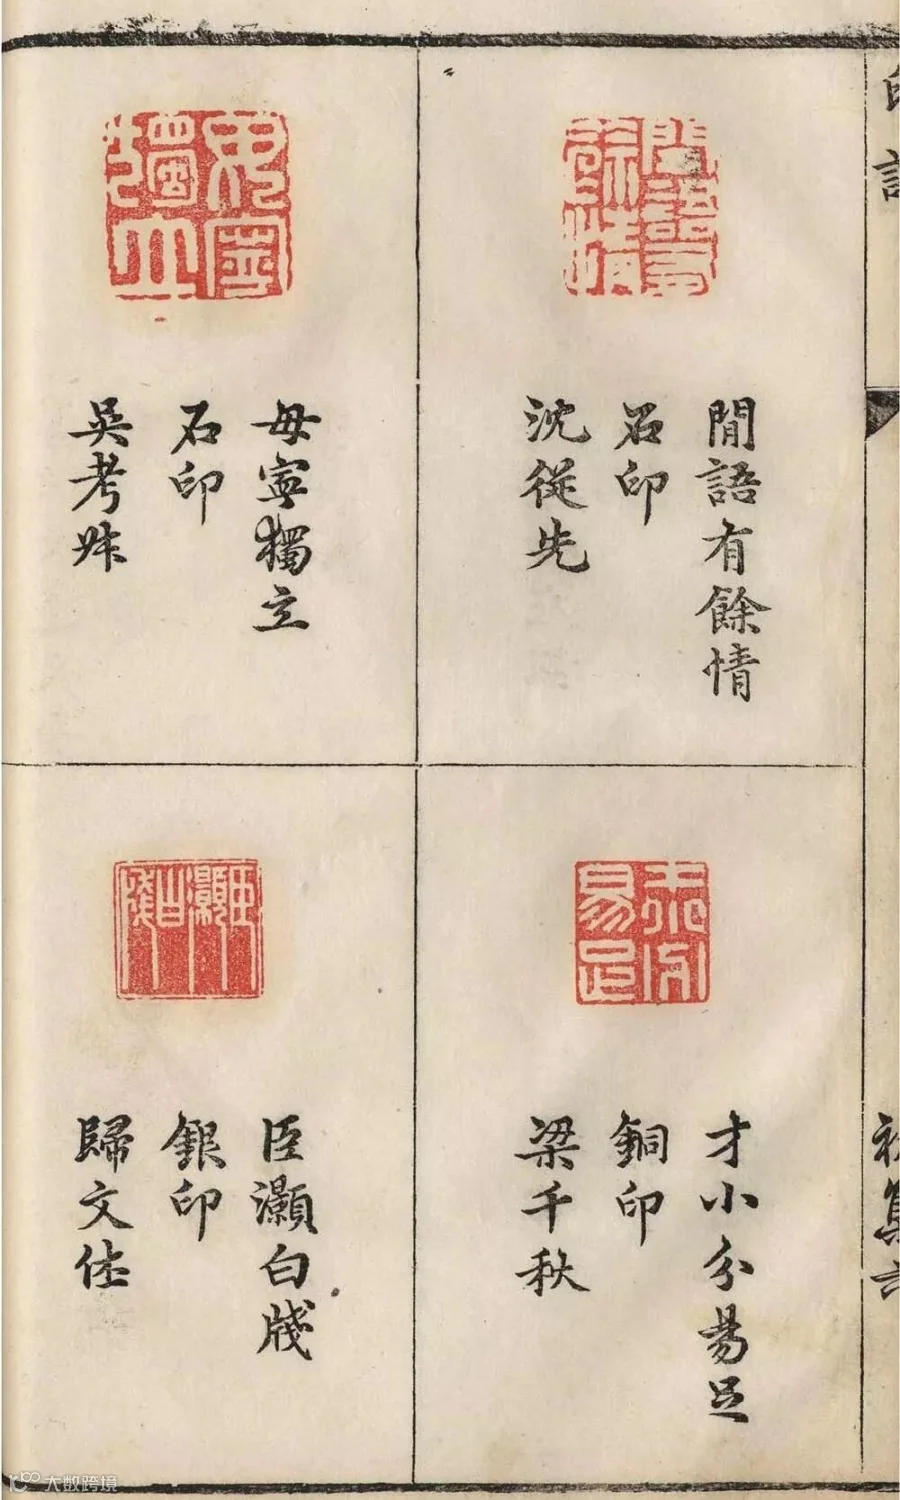 閒語有餘情
石印
沈從先
毋寧獨立
石印
吳考叔
才小分易足
銅印
梁千秋
臣灝白牋
銀印
歸文休
大数跨境